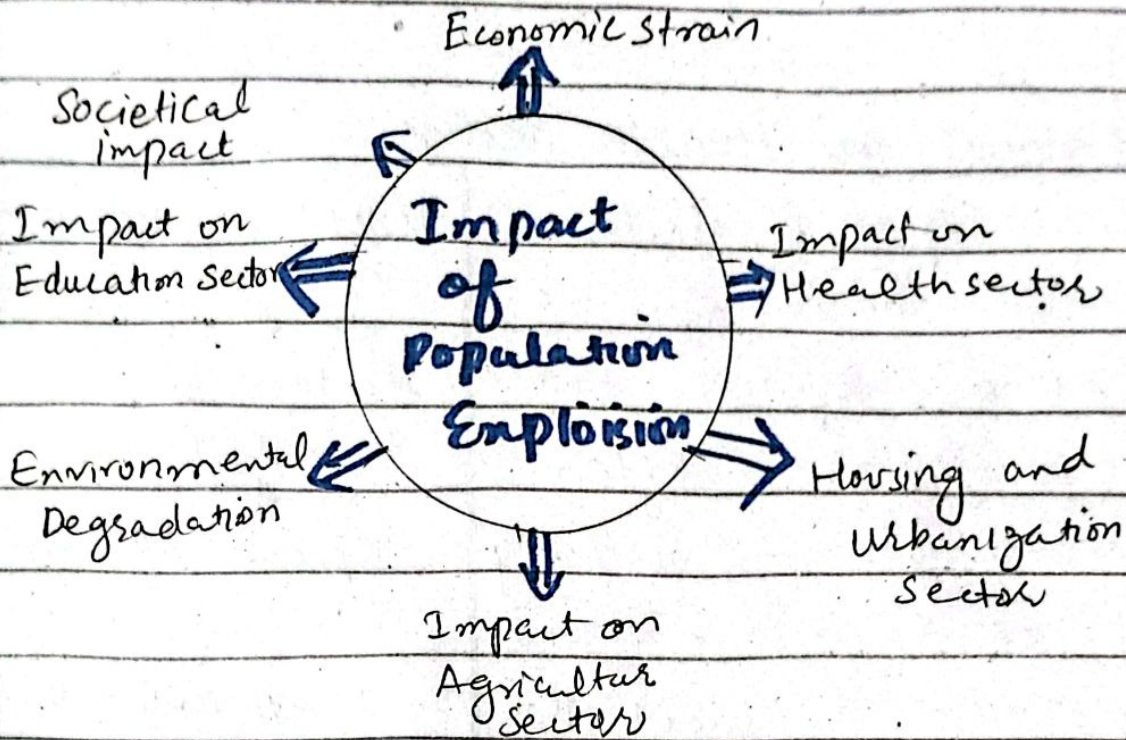 Economic strain
Societical
impact
Impact on
Education Sector
Impact
of
Population
Exploision
Impact on
Health sector
Environmental
Degradation
Housing and
Urbanization
Sector
Impact on
Agricultur
Sector